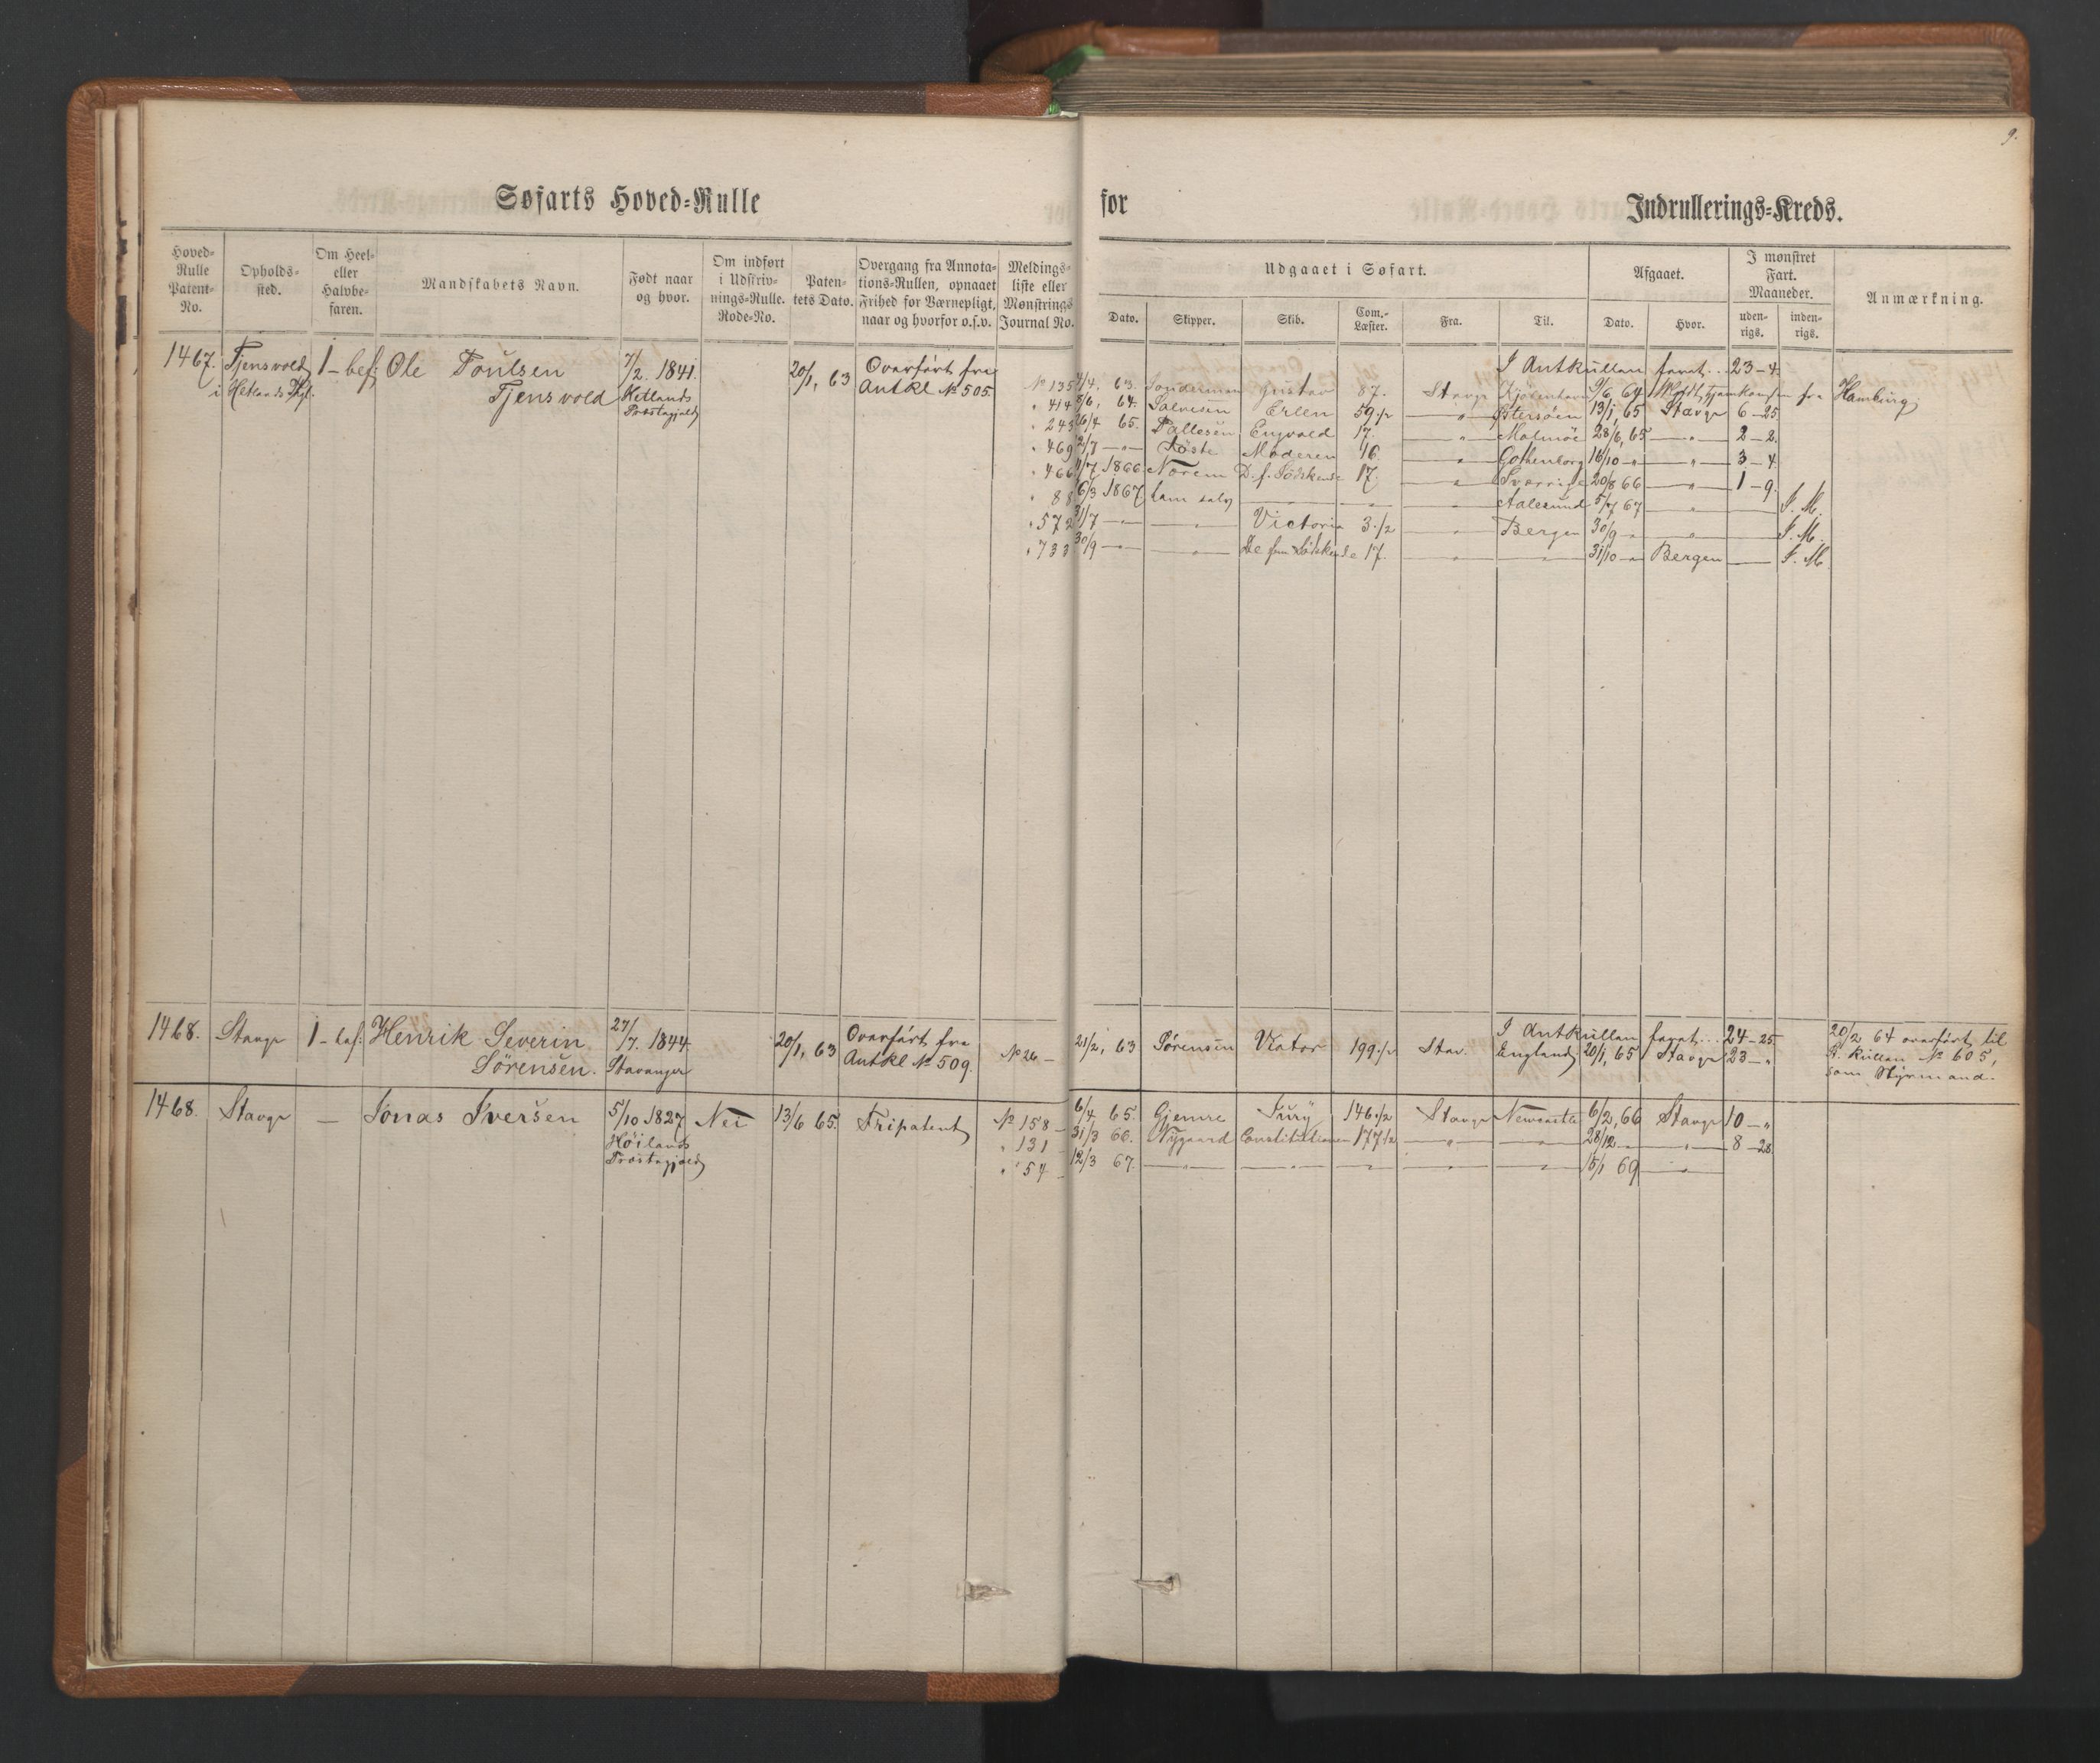 9.
Søfarts Hoved=Rulle for Indrullerings=Kreds.
Hoved=Rulle Patent=No.
Opholds=sted.
Om Heel= eller Halvbe=faren.
Mandskabets Navn.
Født naar og hvor.
Om indført i Udskriv=nings=Rulle. Rode=No.
Paten=tets Dato.
Overgang fra Annota=tions=Rullen, opnaaet Frihed for Værnepligt, naar og hvorfor o.s.v.
Meldings=liste eller Mønstrings Journal No.
Udgaaet i Søfart.
Dato. Skipper. Skib. Com.=Læster. Fra. Til.
Afgaaet.
Dato. Hvor.
I mønstret Fart. Maaneder.
uden=rigs. inden=rigs.
Anmærkning.
1467. Tjensvold 1 - bef. Ole Poulsen 7/2. 1841. 20/1, 63 Overført fra
i Hetlands Pgj. Tjensvold Hetlands Antkl № 505.
Præstegjeld
I Antkullen farat... 23-4.
№ 135 4/4, 63. Gustav 87. Stavgr Kjøbenhavn 9/6, 64 fra Hamburg
" 414 8/6, 64. Salvesen Erlen 59 1/2 " Østersøen 13/1, 65 Stavgr 6-25
" 243 26/4 65. Pallesen Engvald 17. " Malmöe 28/6, 65 " 2-2.
" 469 12/7 - Moderen 16 " Gothenborg 16/10 " " 3-4.
" 466 4/7 1866 Norem D. f. Södskende 17. " Sverrige 20/8 66 " 1-9.
" 88 6/3 1867 ham selv " Aalesund 5/7 67 " I. M.
" 572 31/7 - " Victoria 3 1/2 " Bergen 30/9 " " I. M.
" 733 30/9 - " De fem Södskende 17. " " 31/10 " Bergen - I. M.
1468. Stavgr 1 - bef. Henrik Severin 27/7. 1844. 20/1, 63 Overført fra
Sörensen. Stavanger Antkl № 509.
I Antkullen farat... 24-25
№ 26 - 21/2, 63 Sörensen Viator 199 1/2 Stav. England 20/1, 65 Stavgr 23-"
20/2 64 overført til
R. Rullen № 605,
som Styrmand.
1468. Stavgr - Jonas Iversen 5/10 1827 Nei 13/6 65. Fripatent
Höilands
Præstegjeld
№ 158 - 6/4 65. Gjemre Fury 146 1/2 Stavgr Newcastle 6/2, 66 Stavgr 10-"
" 131 31/3 66. Nygaard Constitutionen 177 1/2 " " 28/12 " " 8-28
" 54 - 12/3 67. " " " " " 15/1 69 "